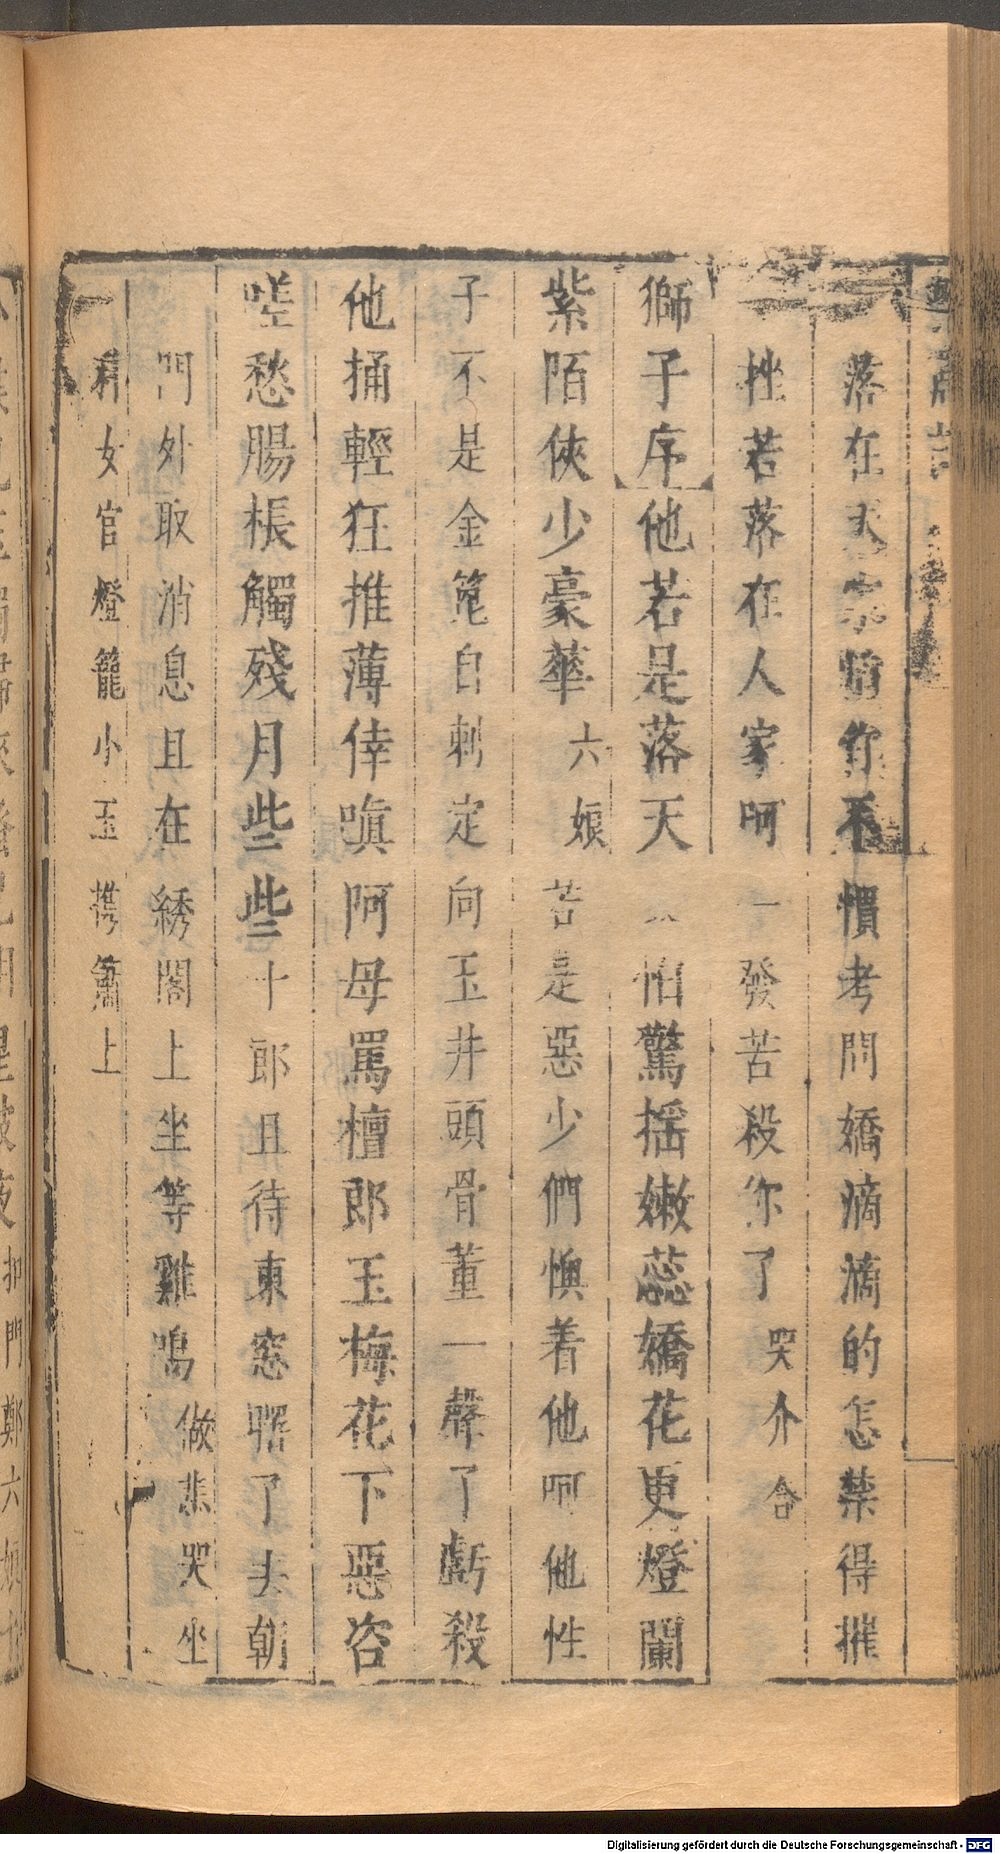 落在天家惱你不慣考問嬌滴滴的怎禁得摧
挫若落在人家呵一發苦殺你了哭介合
獅子序他若是落天怕驚搖嫩蕊嬌花更燈闌
紫陌俠少豪華六娘苦是惡少們懊着他呵他性
子不是金篦自刺定向玉井頭骨董一聲了虧殺
他捅輕狂推薄倖嗔阿母罵檀郎玉梅花下惡咨
嗟愁腸棖觸殘月些些十郎且待東窓曙了去朝
門外取消息且在綉閣上坐等雞鳴做悲哭坐
扮女官燈籠小玉携簫上
扣門鄭六娘
Digitalisierung gefördert durch die Deutsche Forschungsgemeinschaft - DFG